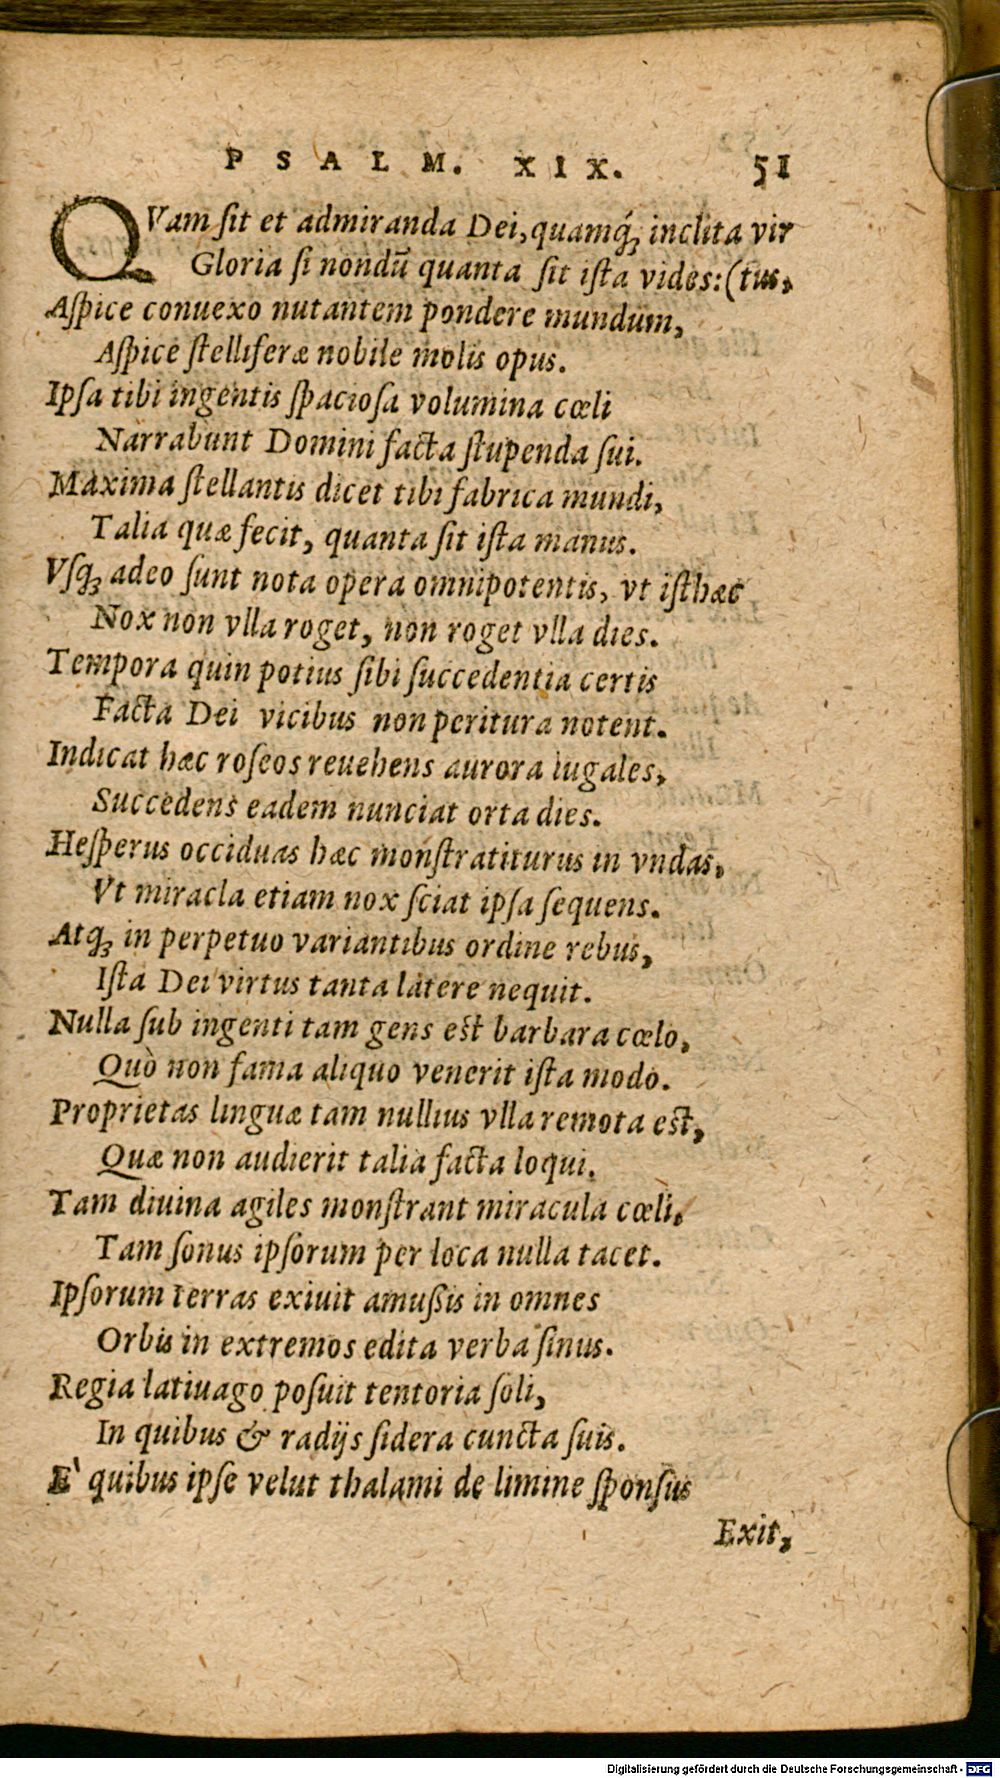 PSALM. XIX. 51
QVam ſit et admiranda Dei, quamq́ꝫ inclita vir
Gloria ſi nondū quanta ſit iſta vides: (tus,
Aſpice conuexo nutantem pondere mundum,
Aſpice ſtelliferæ nobile molis opus.
Ipſa tibi ingentis ſpacioſa volumina cœli
Narrabunt Domini facta ſtupenda ſui.
Maxima ſtellantis dicet tibi fabrica mundi,
Talia quæ fecit, quanta ſit iſta manus.
Vſqꝫ adeo ſunt nota opera omnipotentis, vt iſthæc
Nox non vlla roget, non roget vlla dies.
Tempora quin potius ſibi ſuccedentia certis
Facta Dei vicibus non peritura notent.
Indicat hæc roſeos reuehens aurora iugales,
Succedens eadem nunciat orta dies.
Heſperus occiduas hæc monſtratiturus in vndas,
Vt miracla etiam nox ſciat ipſa ſequens.
Atqꝫ in perpetuo variantibus ordine rebus,
Iſta Dei virtus tanta latere nequit.
Nulla ſub ingenti tam gens eſt barbara cœlo,
Quò non fama aliquo venerit iſta modo.
Proprietas linguæ tam nullius vlla remota eſt,
Quæ non audierit talia facta loqui.
Tam diuina agiles monſtrant miracula cœli,
Tam ſonus ipſorum per loca nulla tacet.
Ipſorum terras exiuit amußis in omnes
Orbis in extremos edita verba ſinus.
Regia latiuago poſuit tentoria ſoli,
In quibus & radijs ſidera cuncta ſuis.
E' quibus ipſe velut thalami de limine ſponſus
Exit,
Digitalisierung gefördert durch die Deutsche Forschungsgemeinschaft - DFG